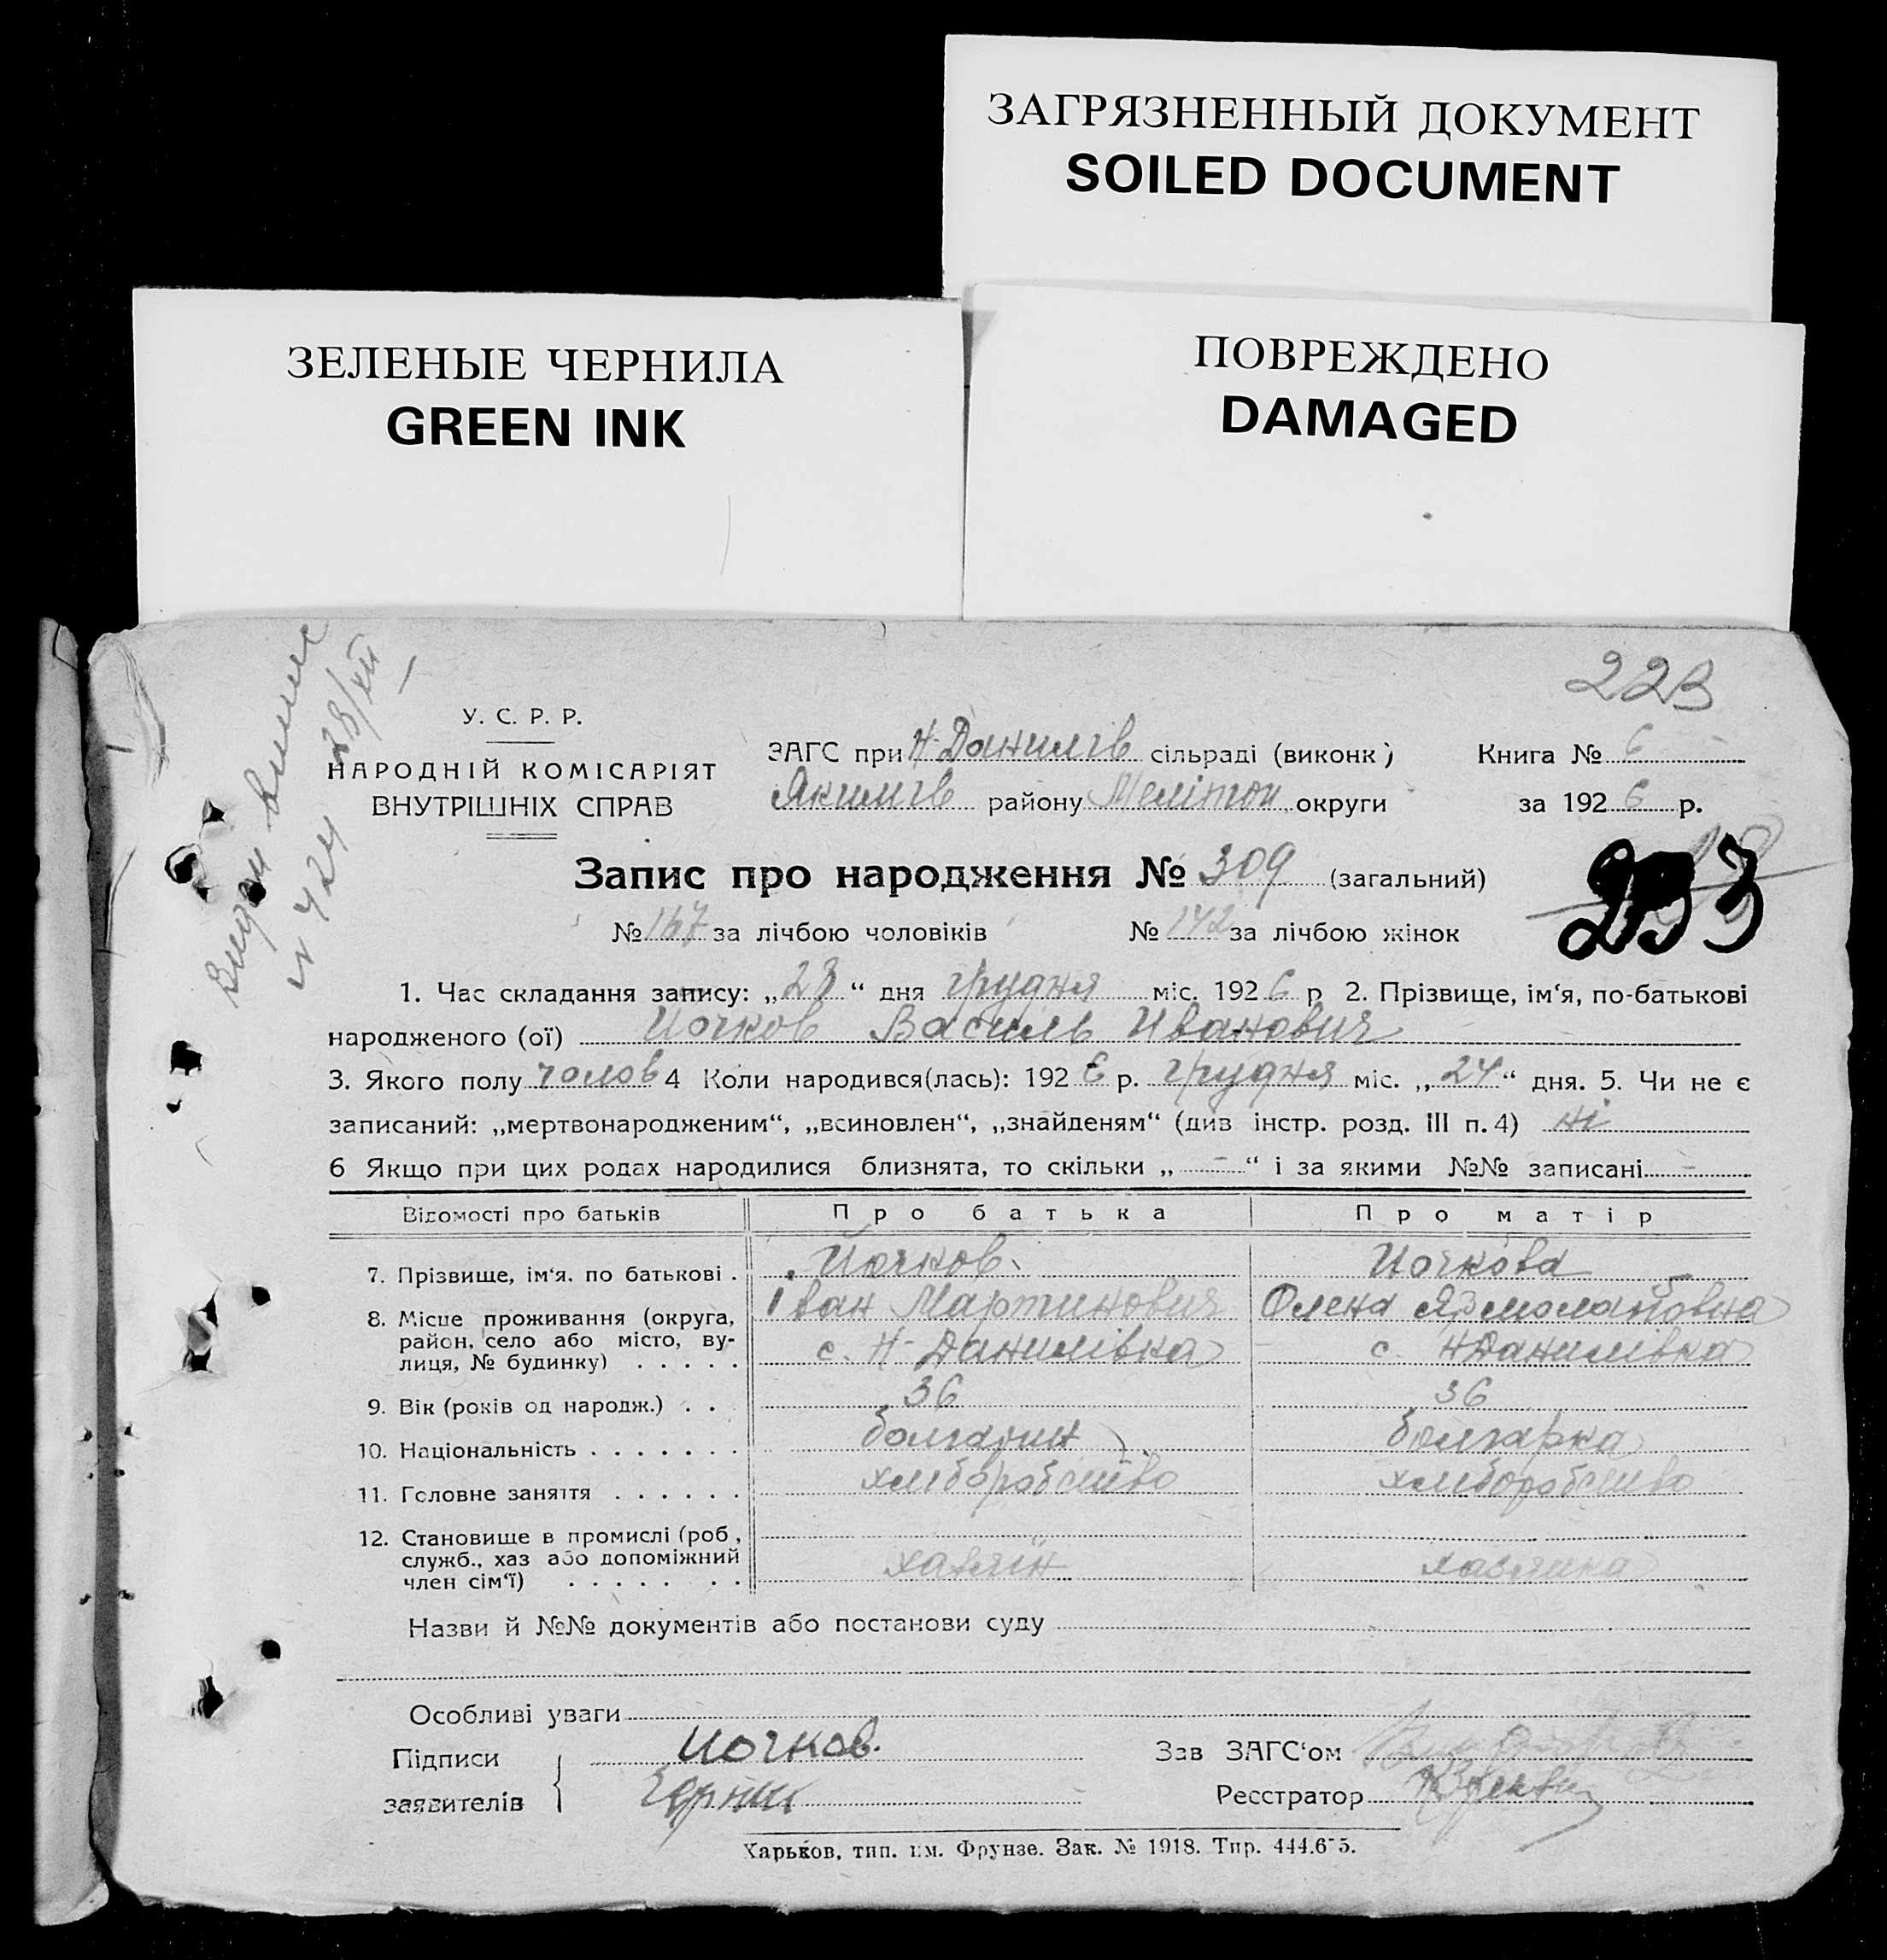 ЗАГРЯЗНЕННЫЙ ДОКУМЕНТ
SOILED DOCUMENT
ЗЕЛЕНЫЕ ЧЕРНИЛА
GREEN INK
ПОВРЕЖДЕНО
DAMAGED
223
У. С. Р. Р.
НАРОДНІЙ КОМІСАРІЯТ
ВНУТРІШНІХ СПРАВ
ЗАГС при Н-Данилів сільраді (виконк)
Якимів району Мелітоп округи
Книга № 6
за 1926 р.
Запис про народження № 309 (загальний)
№ 167 за лічбою чоловіків № 142 за лічбою жінок
1. Час складання запису: „28“ дня грудня міс. 1926 р 2. Прізвище, ім‘я, по-батькові
народженого (ої) Иочков Василь Иванович
3. Якого полу чолов 4 Коли народився(лась): 1926 р. грудня міс. „24“ дня. 5. Чи не є
записаний: „мертвонародженим“, „всиновлен“, „знайденям“ (див інстр. розд. III п. 4) ні
6 Якщо при цих родах народилися близнята, то скільки „-“ і за якими №№ записані -
Відомості про батьків Про батька Про матір
7. Прізвище, ім‘я, по батькові . Иочков. Иочкова
Іван Мартинович Олена
8. Місце проживання (округа,
район, село або місто, ву-
лиця, № будинку) . . . . . с. Н-Данилівка с. НДанилівка
9. Вік (років од народж.) . . 36 36
10. Національність . . . . . . . болгарин болгарка
11. Головне заняття . . . . . . хліборобство хліборобство
12. Становище в промислі (роб,
служб., хаз або допоміжний
член сім‘ї) . . . . . . . хазяїн хазяйка
Назви й №№ документів або постанови суду
Особливі уваги
Підписи
заявителів
Иочков.
Зав ЗАГС‘ом
Реєстратор
Харьков, тип. им. Фрунзе. Зак. № 1918. Тир.